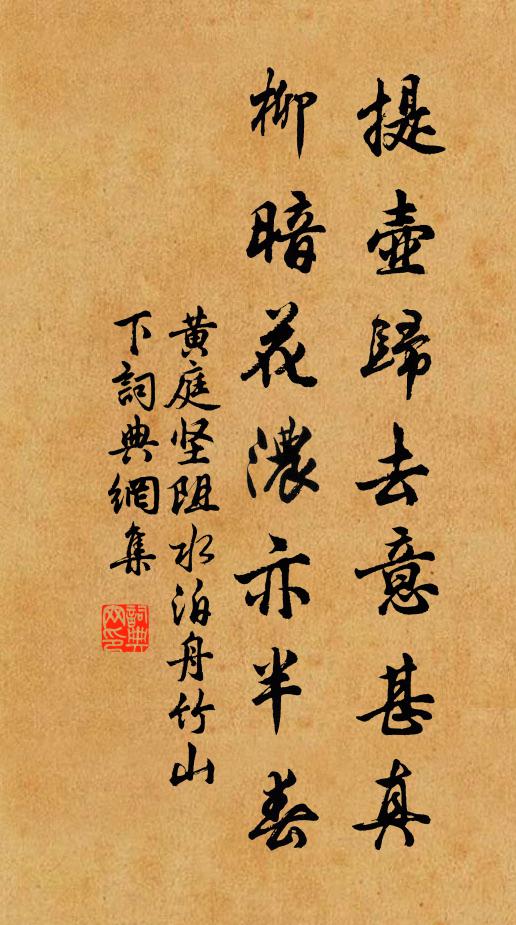 提壺歸去意甚真
柳暗花濃亦半春
黄庭坚阻水泊舟竹山
下詞典網集
詞典網印